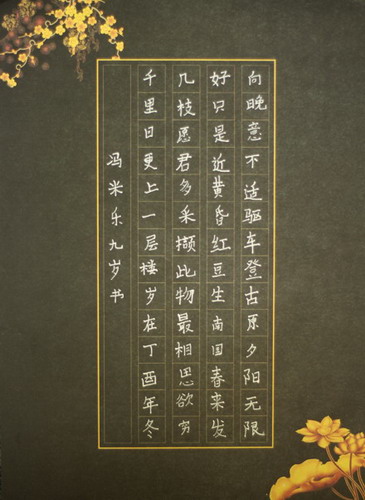 向晚意不适驱车登古原夕阳无限
好只是近黄昏红豆生南国春来发
几枝愿君多采撷此物最相思欲穷
千里目更上一层楼岁在丁酉年冬
冯米乐九岁书